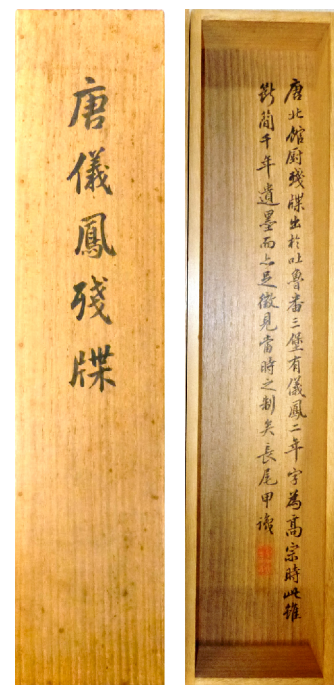 唐儀鳳殘牒
唐北館廚殘牒出於吐魯番三堡有儀鳳二年字為高宗時此雖
斷簡千年遺墨而亦足徵見當時之制矣長尾甲識